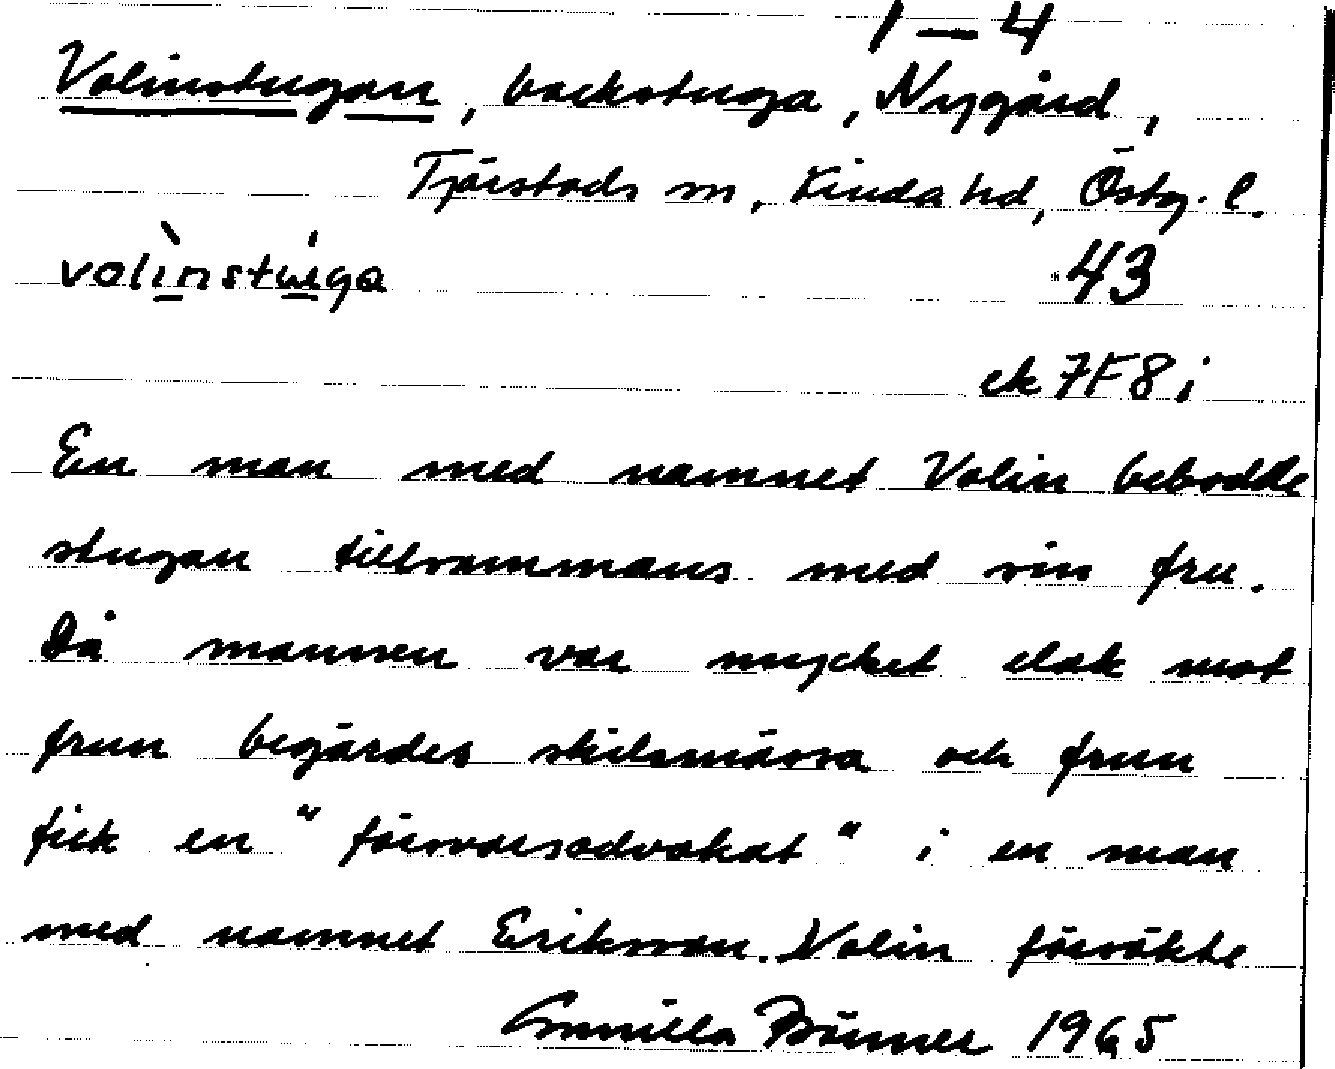 1-4
Volinstugan, backstuga, Nygård,
Tjärstads sn, Kinda hd, Östg. l.
volìnstúga
43
ek 7F8i
En man med namnet Volin bebodde
stugan tillsammans med sin fru.
Då mannen var mycket elak mot
frun begärdes skilsmässa och frun
fick en "försvarsadvokat" i en man
med namnet Eriksson. Volin försökte
Gunilla Bönner 1965